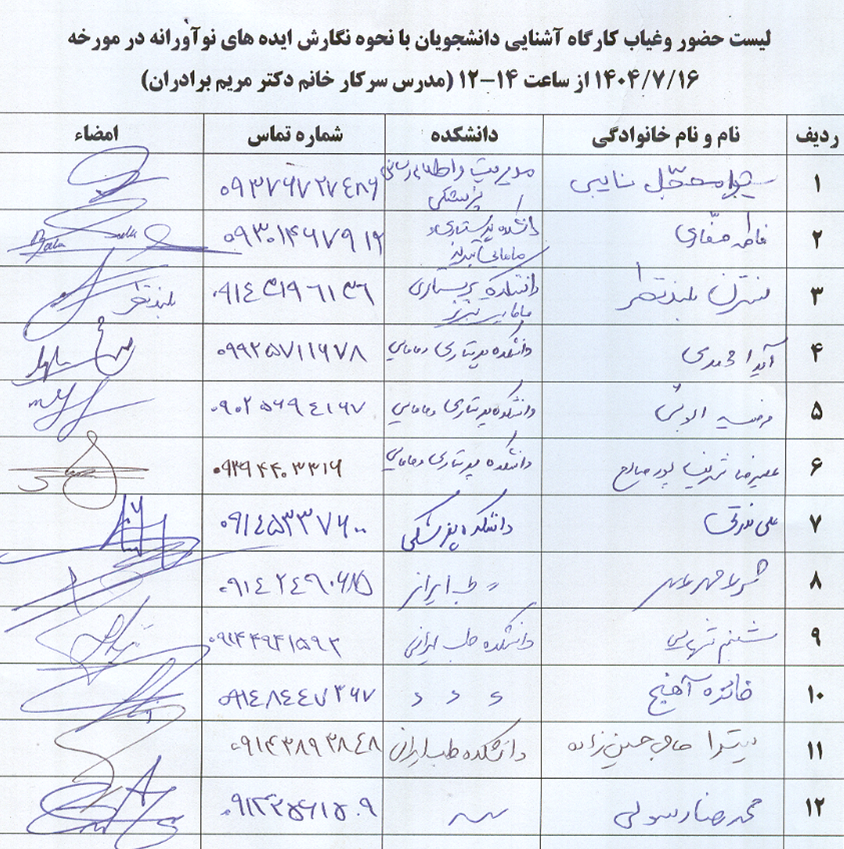 لیست حضور وغیاب کارگاه آشنایی دانشجویان با نحوه نگارش ایده های نوآورانه در مورخه
۱۴۰۴/۷/۱۶ از ساعت ۱۴-۱۲ (مدرس سرکار خانم دکتر مریم برادران)
ردیف نام و نام خانوادگی دانشکده شماره تماس امضاء
۱ نایبی مدیریت و اطلاع رسانی پزشکی ۰۹۳۷۶۷۲۷۴۸۶
۲ فاطمه صفاری دانشکده پرستاری و مامایی تبریز ۰۹۳۰۱۴۶۷۹۱۲
۳ نسترن بلندنظر دانشکده پرستاری مامایی تبریز ۰۹۱۴۳۱۹۶۱۳۶ بلندنظر
۴ آیدا محمدی دانشکده پرستاری و مامایی ۰۹۹۲۵۷۱۱۶۷۸
۵ دانشکده پرستاری و مامایی ۰۹۰۲۵۶۹۴۱۶۷
۶ علیرضا شریف پور صالح دانشکده پرستاری و مامایی ۰۹۳۹۴۴۰۳۳۱۶
۷ علی دانشکده پزشکی ۰۹۱۴۵۳۳۷۶۰۰
۸ 〃 طب ایرانی
۹ شبنم دانشکده طب ایرانی ۰۹۱۴۴۹۴۱۵۹۲
۱۰ فائزه آهنج 〃 〃 〃 ۰۹۱۴۸۴۴۷۳۶۷
۱۱ میترا حاجی حسین زاده دانشکده طب ایرانی ۰۹۱۴۳۸۹۳۸۴۸
۱۲ محمدرضا رسولی